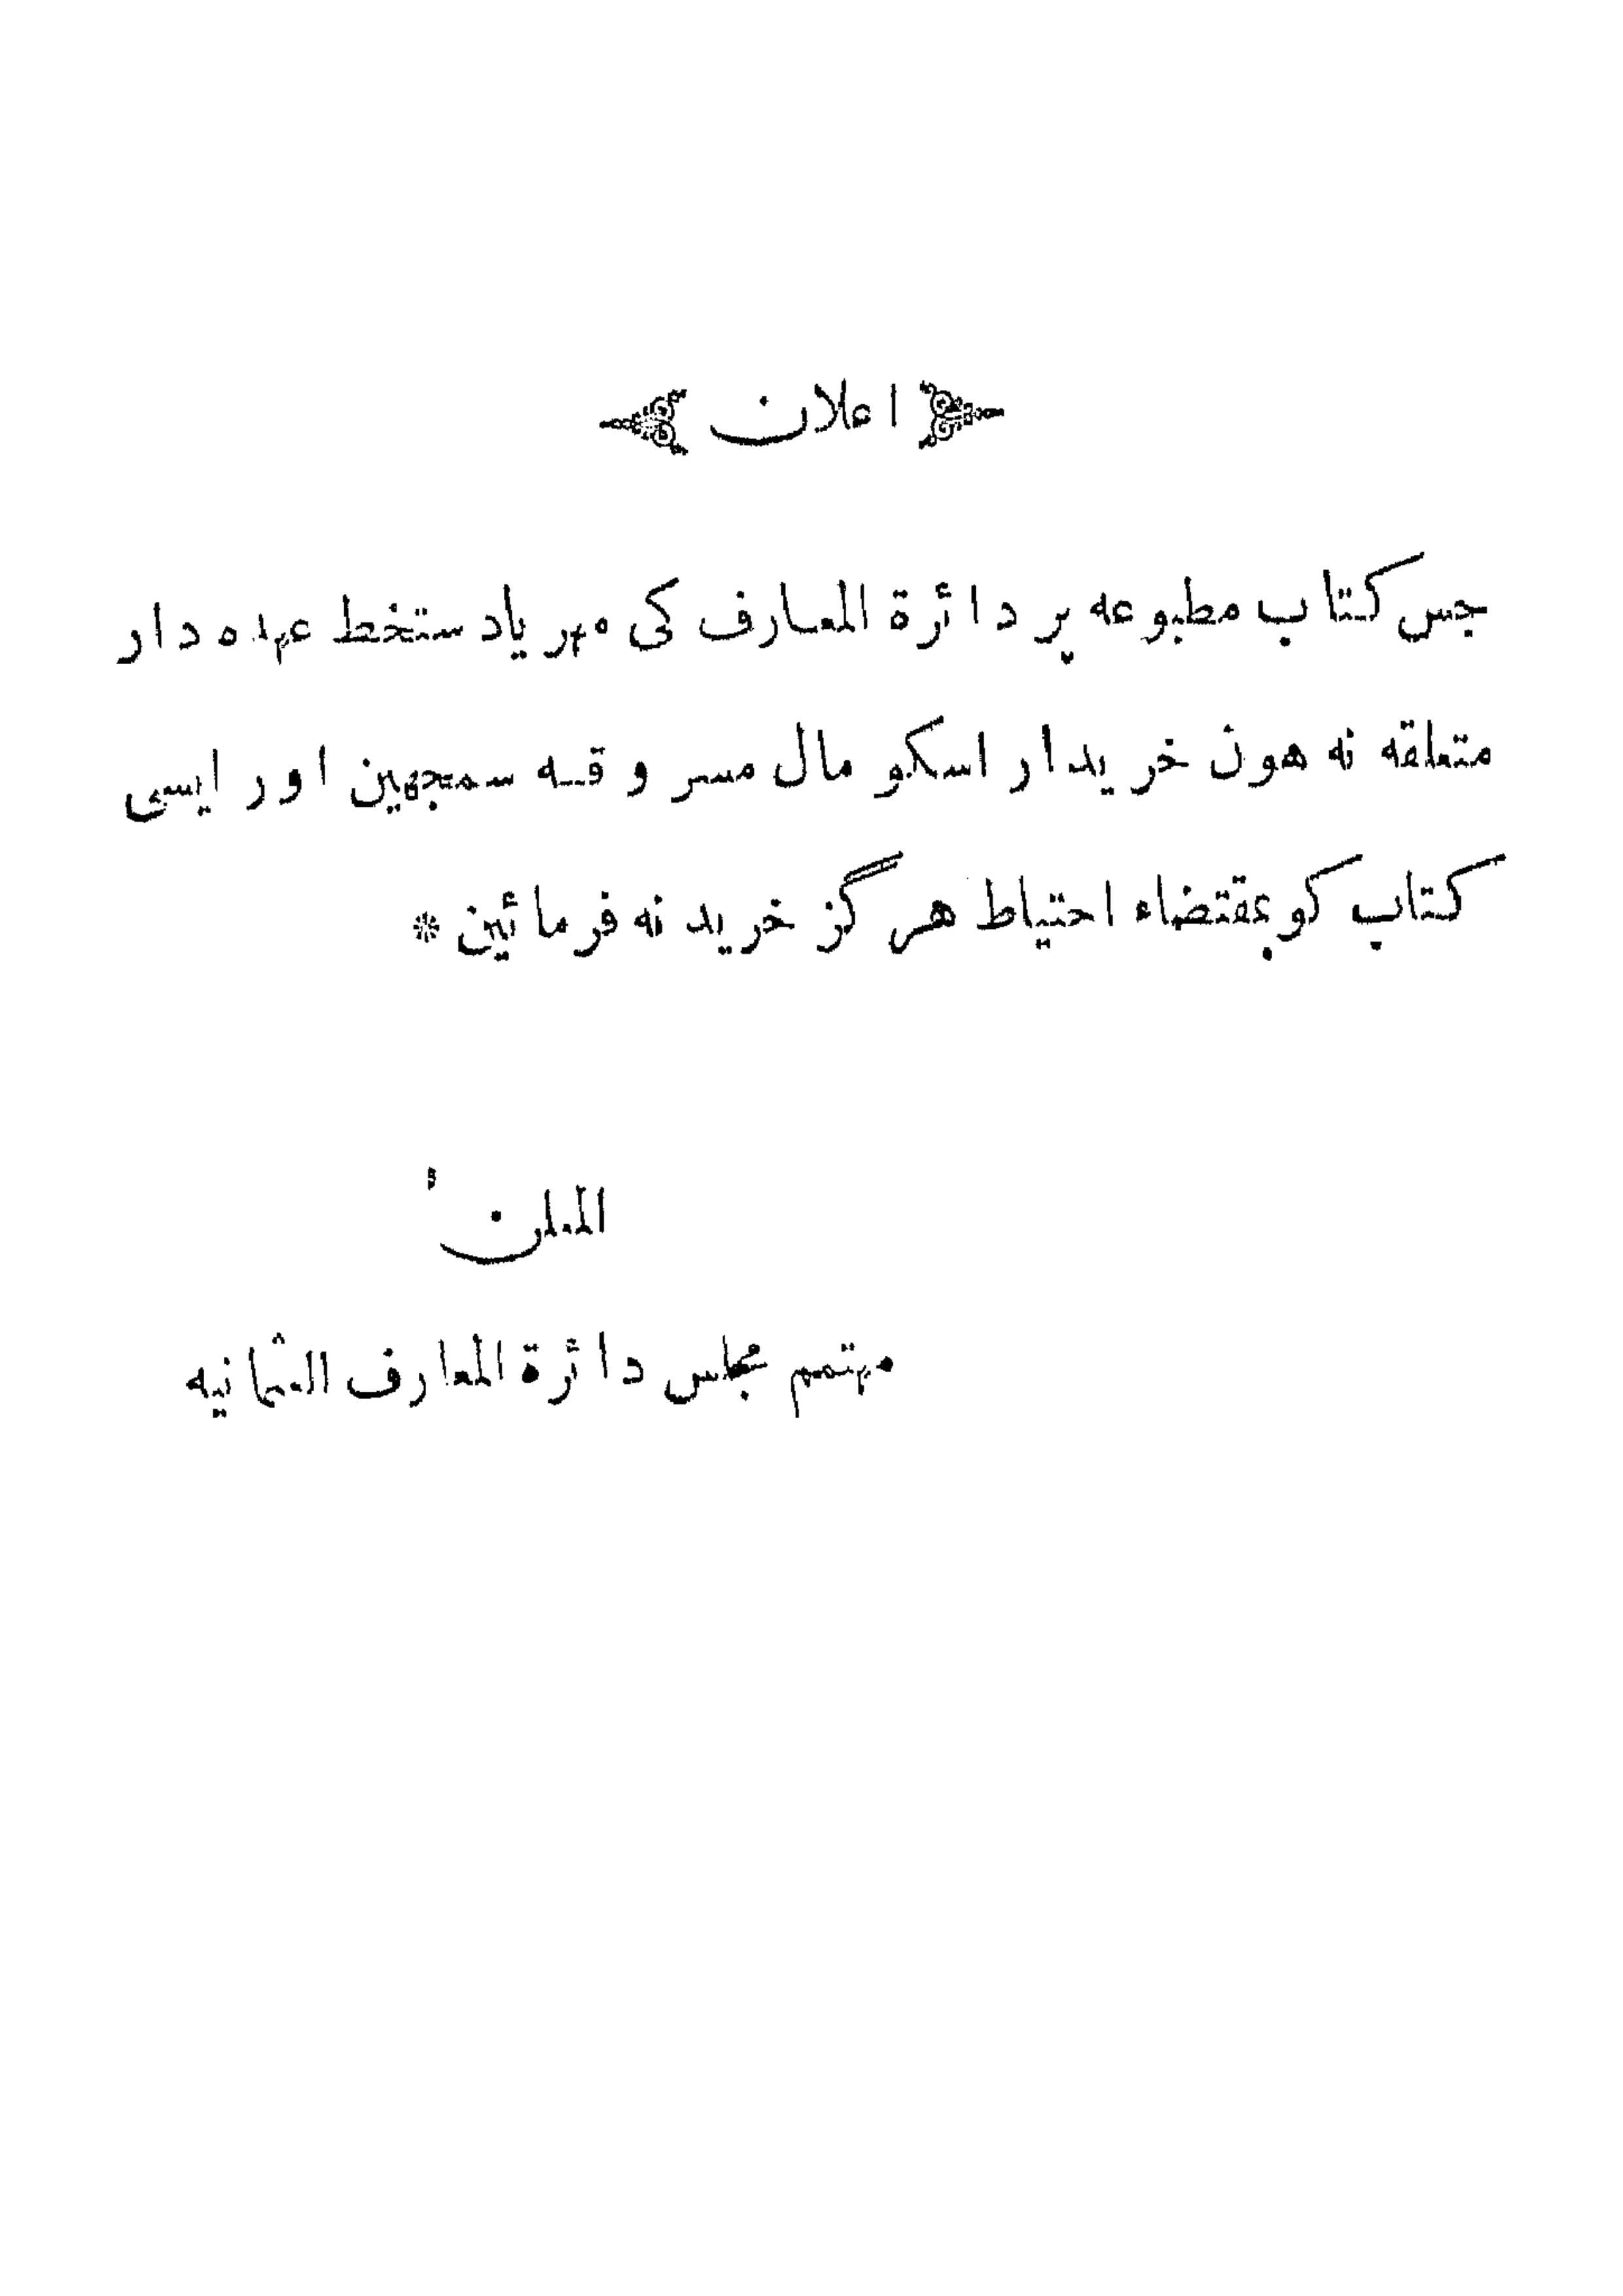 اعلان
جس کتاب مطبوعه پر دائرة المعارف کی مهر یا دستخط عهده دار
متعلقه نه هون خریدار اسکو مال مسروقه سمجهین اور ایسی
کتاب کو بمقتضاء احتیاط هر گز خرید نه فرمائین *
المعلن
مهتمم مجلس دائرة المعارف العثمانیه